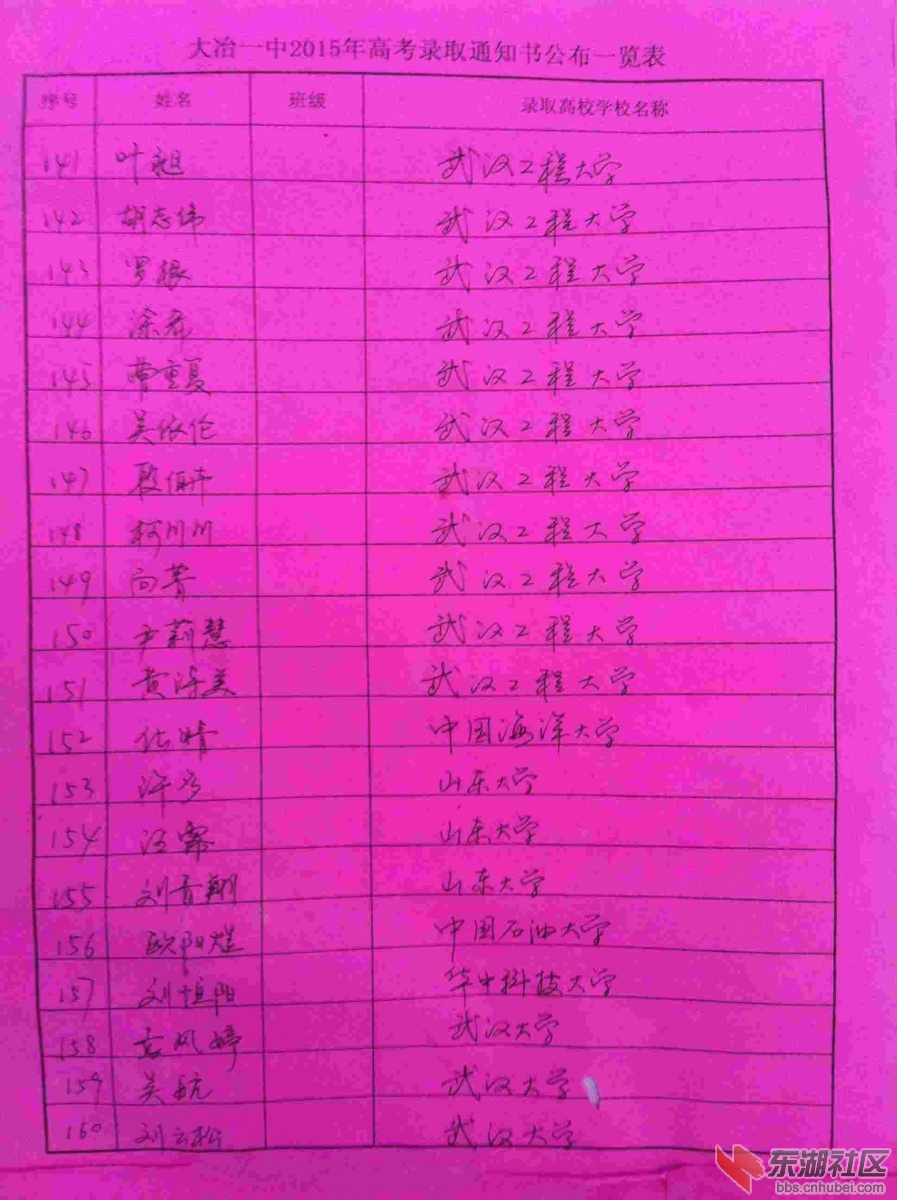 大冶一中2015年高考录取通知书公布一览表
序号 姓名 班级 录取高校学校名称
141 叶昶 武汉工程大学
142 胡志伟 武汉工程大学
143 罗根 武汉工程大学
144 涂希 武汉工程大学
145 曹重夏 武汉工程大学
146 吴依伦 武汉工程大学
147 殷伯卉 武汉工程大学
148 柯川川 武汉工程大学
149 向菁 武汉工程大学
150 尹莉慧 武汉工程大学
151 黄 美 武汉工程大学
152 伍晴 中国海洋大学
153 许 山东大学
154 汪霖 山东大学
155 刘青翔 山东大学
156 欧阳煜 中国石油大学
157 刘恒阳 华中科技大学
158 凤婷 武汉大学
159 吴航 武汉大学
160 刘云松 武汉大学
东湖社区
bbs.cnhubei.com